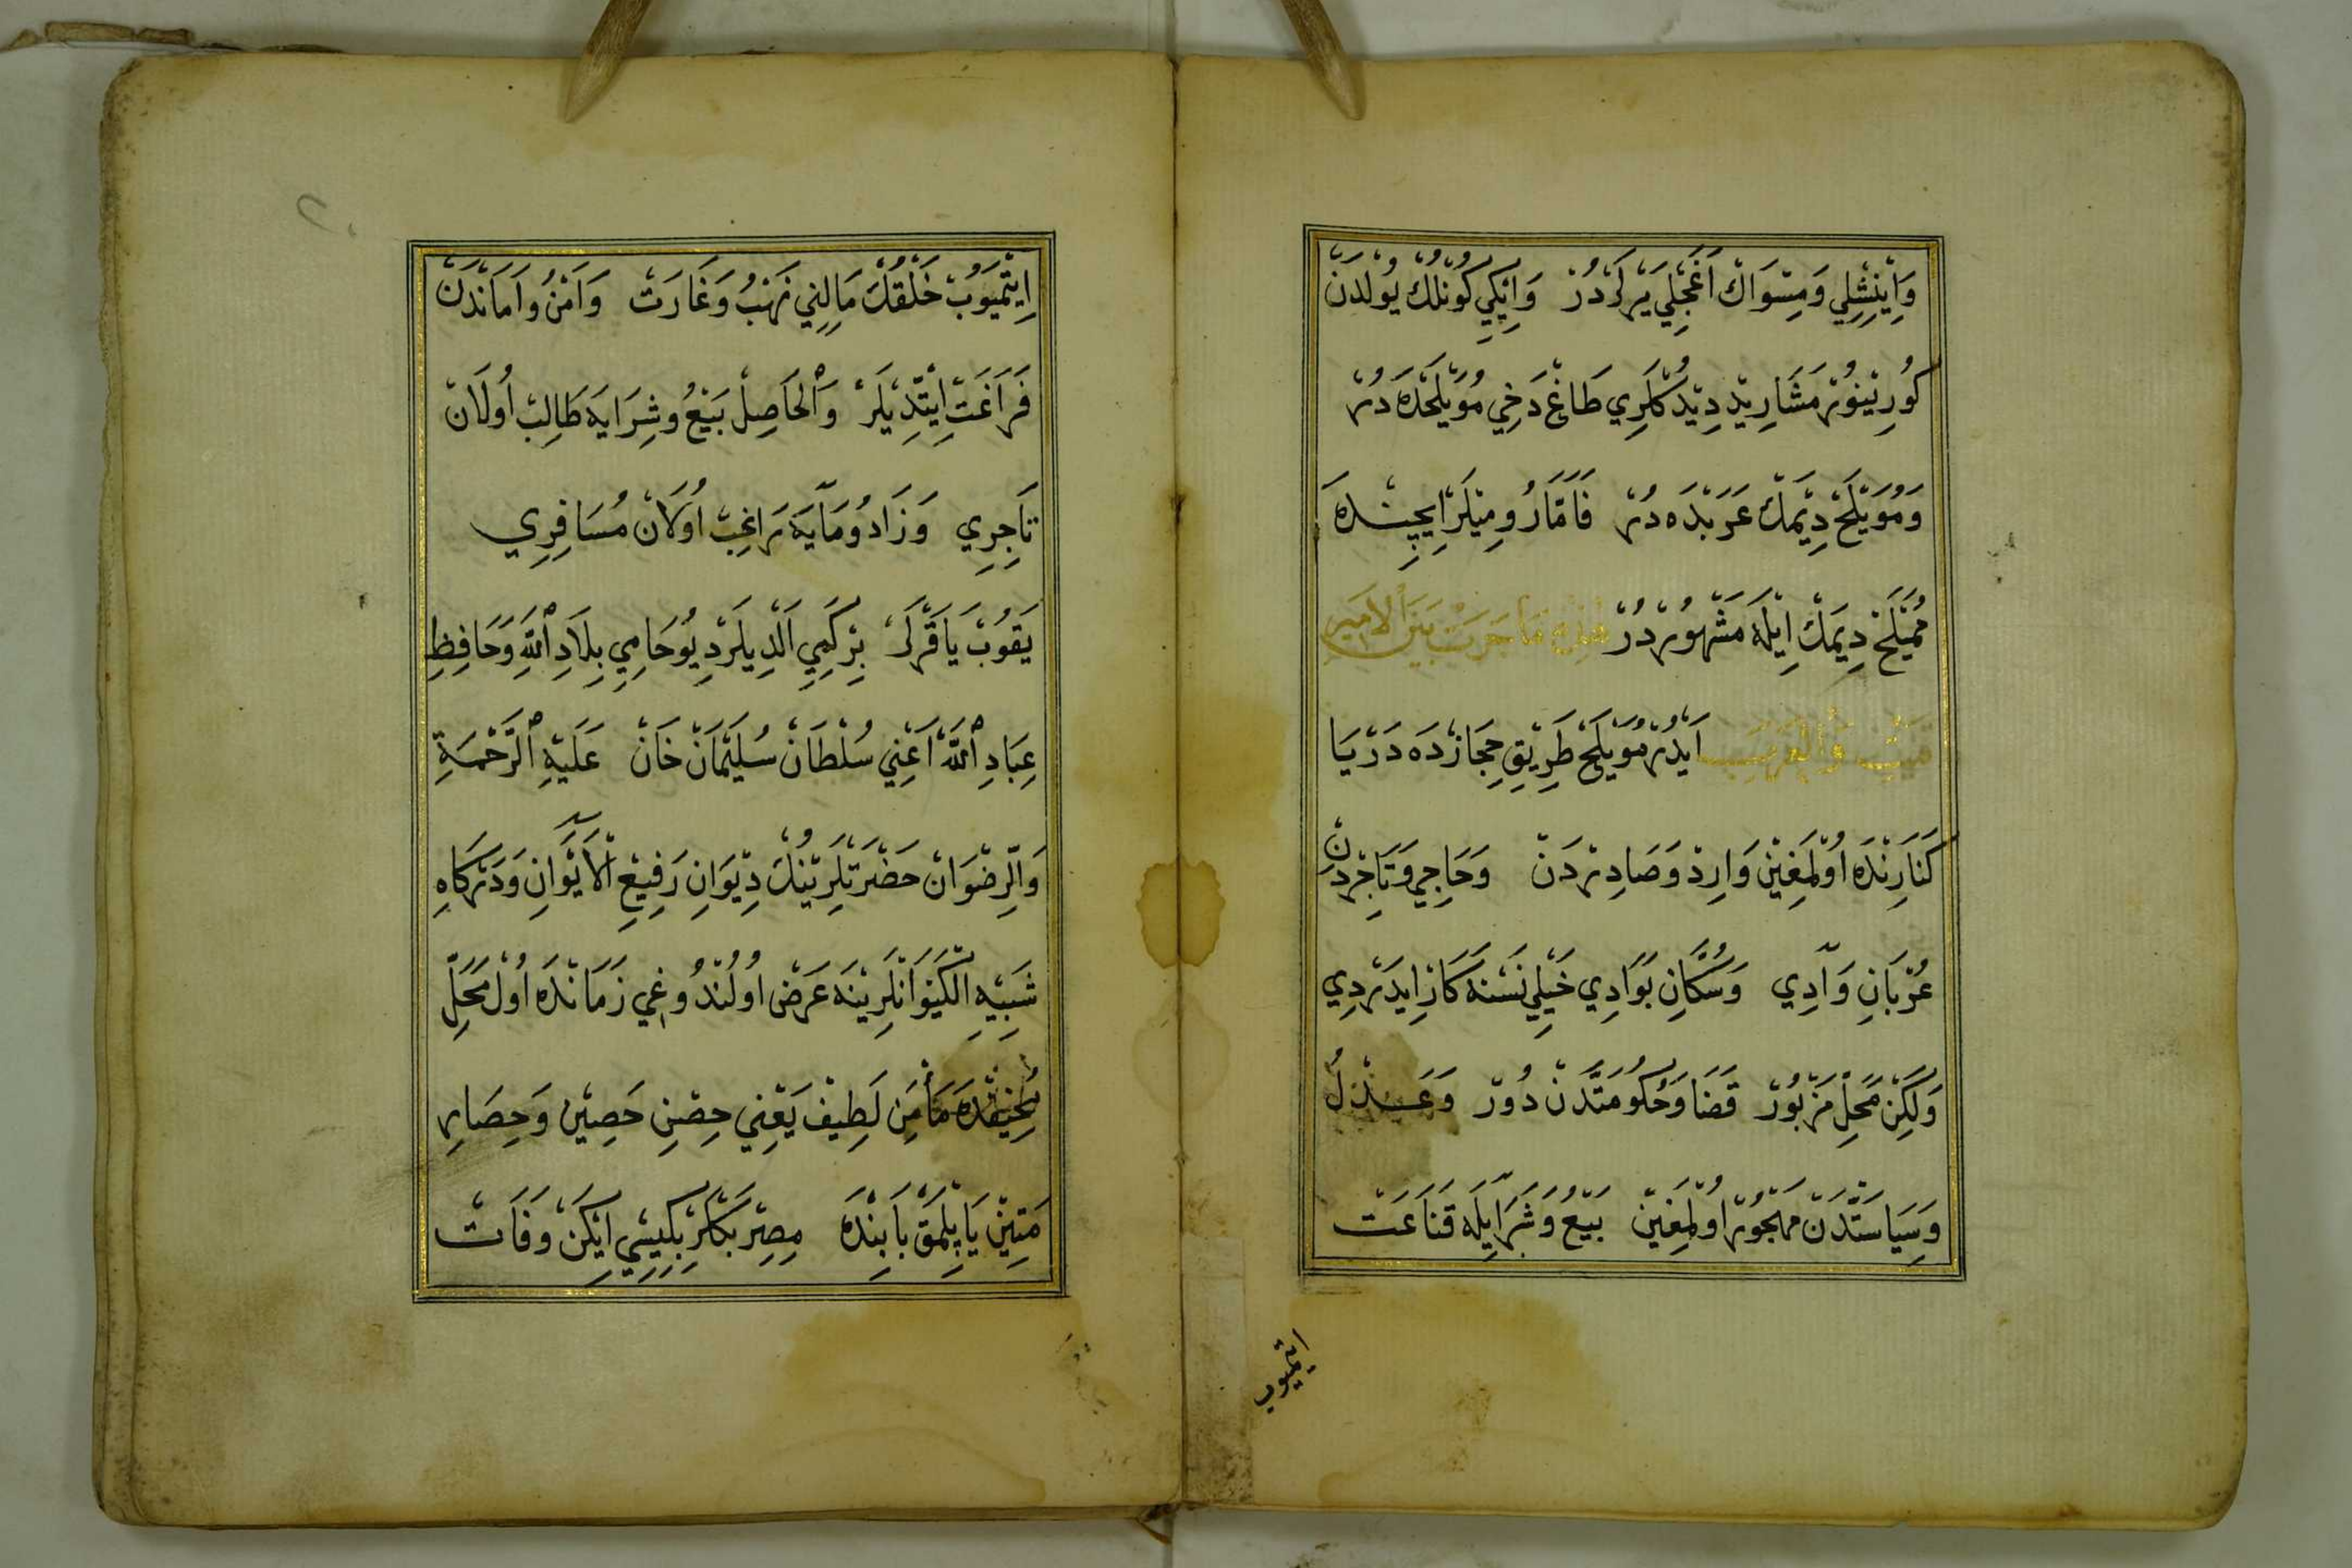 وَاِينِشْلِي وَمِسْوَاكْ اَغَجِلِي يَرْلَرْدُرْ وَاِيكِي كُونْلُكْ يُولْدَنْ
كُورِينُورْ مَشَارِيدْ دِيدُكْلَرِي طَاغْ دَخِي مُوَيْلَحْدَه دُرْ
وَمُوَيْلَحْ دِيمَكْ عَرَبْدَه دُرْ فَامَّا رُومِيلَرْ اِيچِنْدَه
مُمَيْلَحْ دِيمَكْ اِيلَه مَشْهُورْدُرْ هٰذِهِ مَا جَرَتْ بَيْنَ الْاَمِيرِ
وَالْعَرَبِ اَيْدُرْ مُوَيْلَحْ طَرِيقِ حِجَازْدَه دَرْيَا
كَنَارِنْدَه اُولْمَغِينْ وَارِدْ وَصَادِرْدَنْ وَحَاجِي وَتَاجِرْدَنْ
عُرْبَانِ وَادِي وَسُكَّانِ بَوَادِي خَيْلِي نَسْنَه كَارْ اِيدَرْدِي
وَلَكِنْ مَحَلِّ مَزْبُورْ قَضَا وَحُكُومَتْدَنْ دُورْ وَعَدْلُ
وَسِيَاسَتْدَنْ مَهْجُورْ اُولْمَغِينْ بَيْعُ وَشَرَايِلَه قَنَاعَتْ
ايتميوب
اِيتْمَيُوبْ خَلْقُكْ مَالِنِي نَهْبُ وَغَارَتْ وَاَمْنُ وَاَمَانْدَنْ
فَرَاغَتْ اِيتْدِيلَرْ وَالْحَاصِلْ بَيْعُ وشِرَايَه طَالِبْ اُولَانْ
تَاجِرِي وَزَادُ وَمَايَه رَاغِبْ اُولَانْ مُسَافِرِي
يَقُوبْ يَاقَرْلَرْ بِرْ كَمِي اَلْدِيلَرْ دِيُو حَامِي بِلَادِ اللّٰهِ وَحَافِظِ
عِبَادِ اللّٰهْ اَعْنِي سُلْطَانْ سُلَيْمَانْ خَانْ عَلَيْهِ الرَّحْمَةِ
وَالرِّضْوَانْ حَضْرَتْلَرِينُكْ دِيوَانِ رَفِيعِ الْاَيْوَانِ وَدَرْكَاهِ
شَبِيهِ الْكَيْوَانْلَرِينَه عَرْضْ اُولُنْدُوغِي زَمَانْدَه اُولْ مَحَلِّ
مُخِيفْدَه مَأْمَنِ لَطِيفْ يَعْنِي حِصْنِ حَصِينْ وَحِصَارِ
مَتِينْ يَاپِلْمَقْ بَابِنْدَه مِصِرْ بَكْلَرْبِكِيسِي اِيكَنْ وَفَاتْ